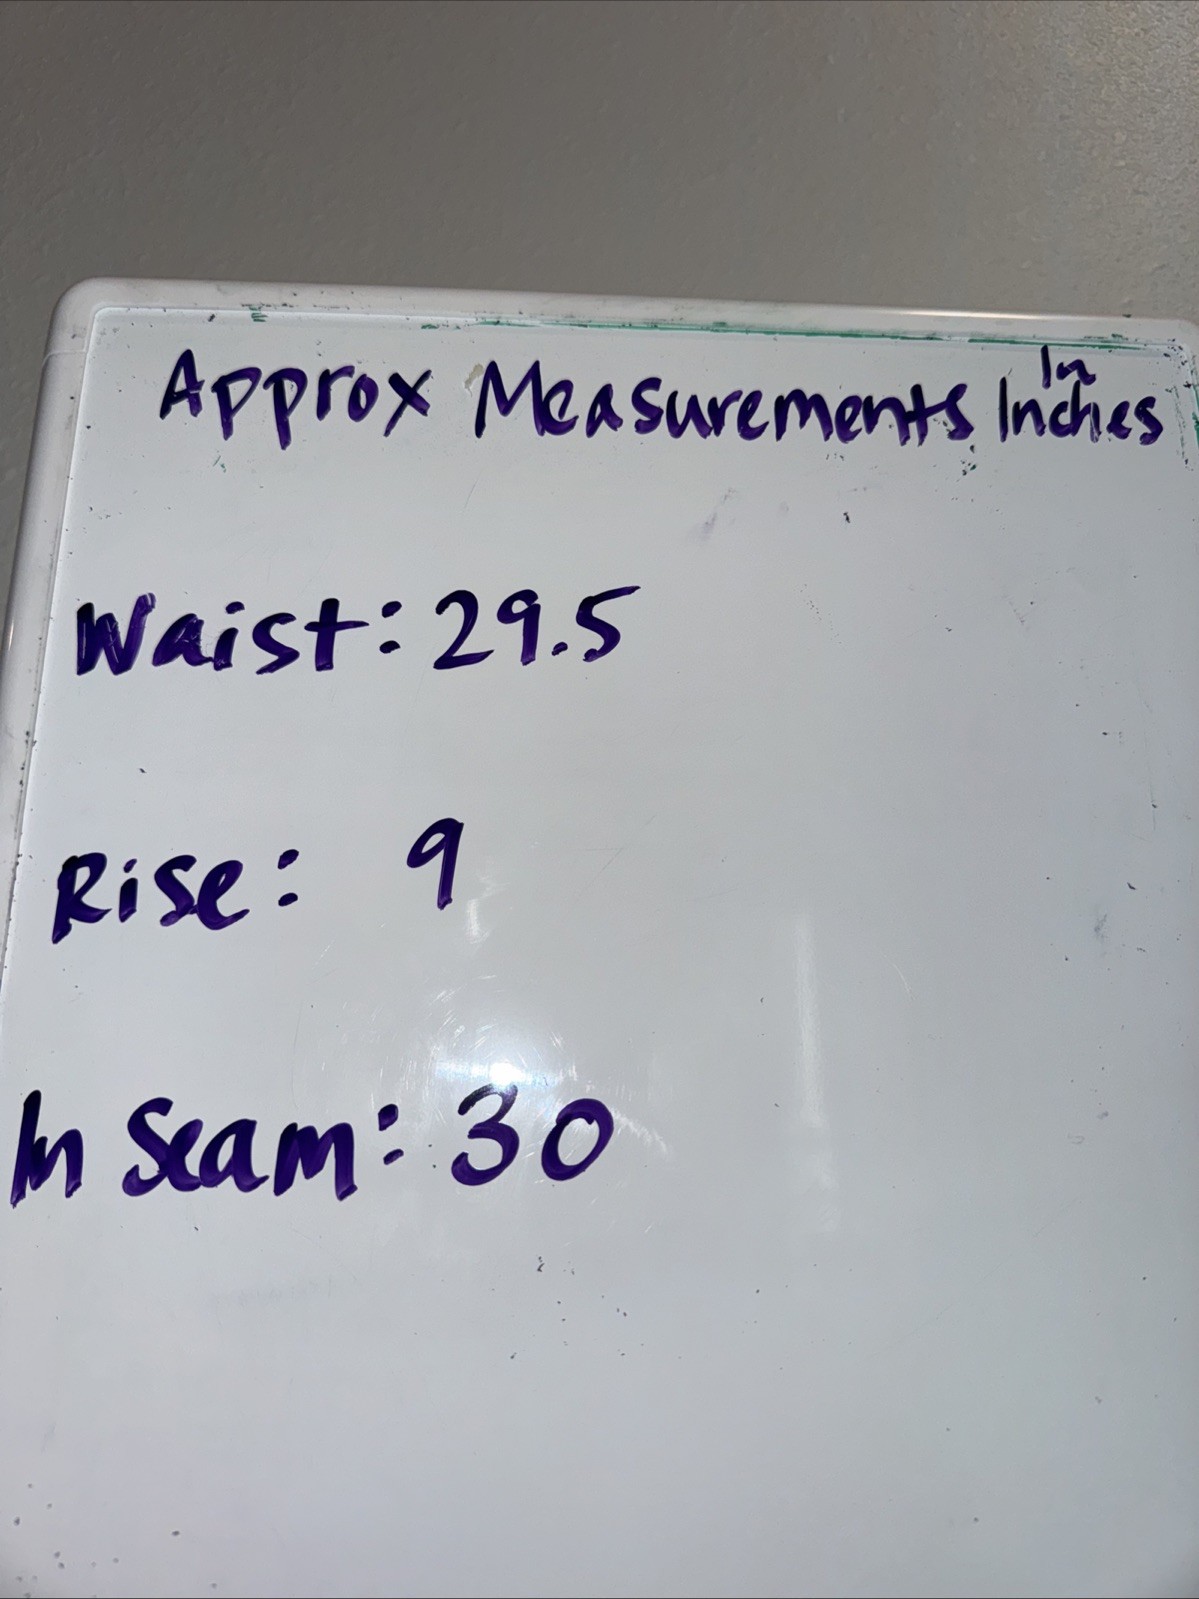 Approx Measurements In Inches
Waist: 29.5
Rise: 9
In Seam: 30